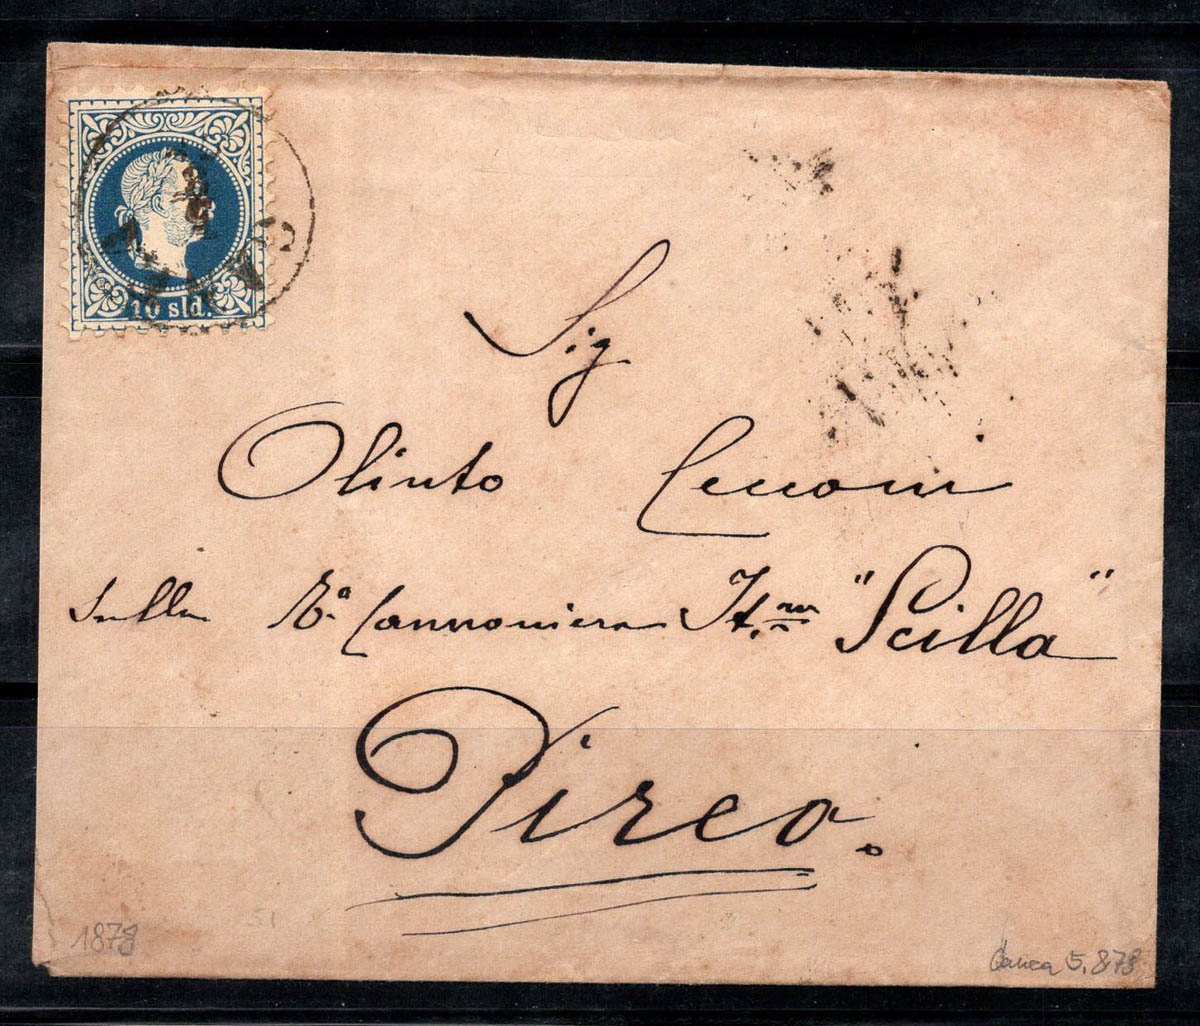 10 sld.
Sig
Olinto Cecconi
sulla R.ª Cannoniera It.na "Scilla"
Pireo.
1878
Canea 5.878